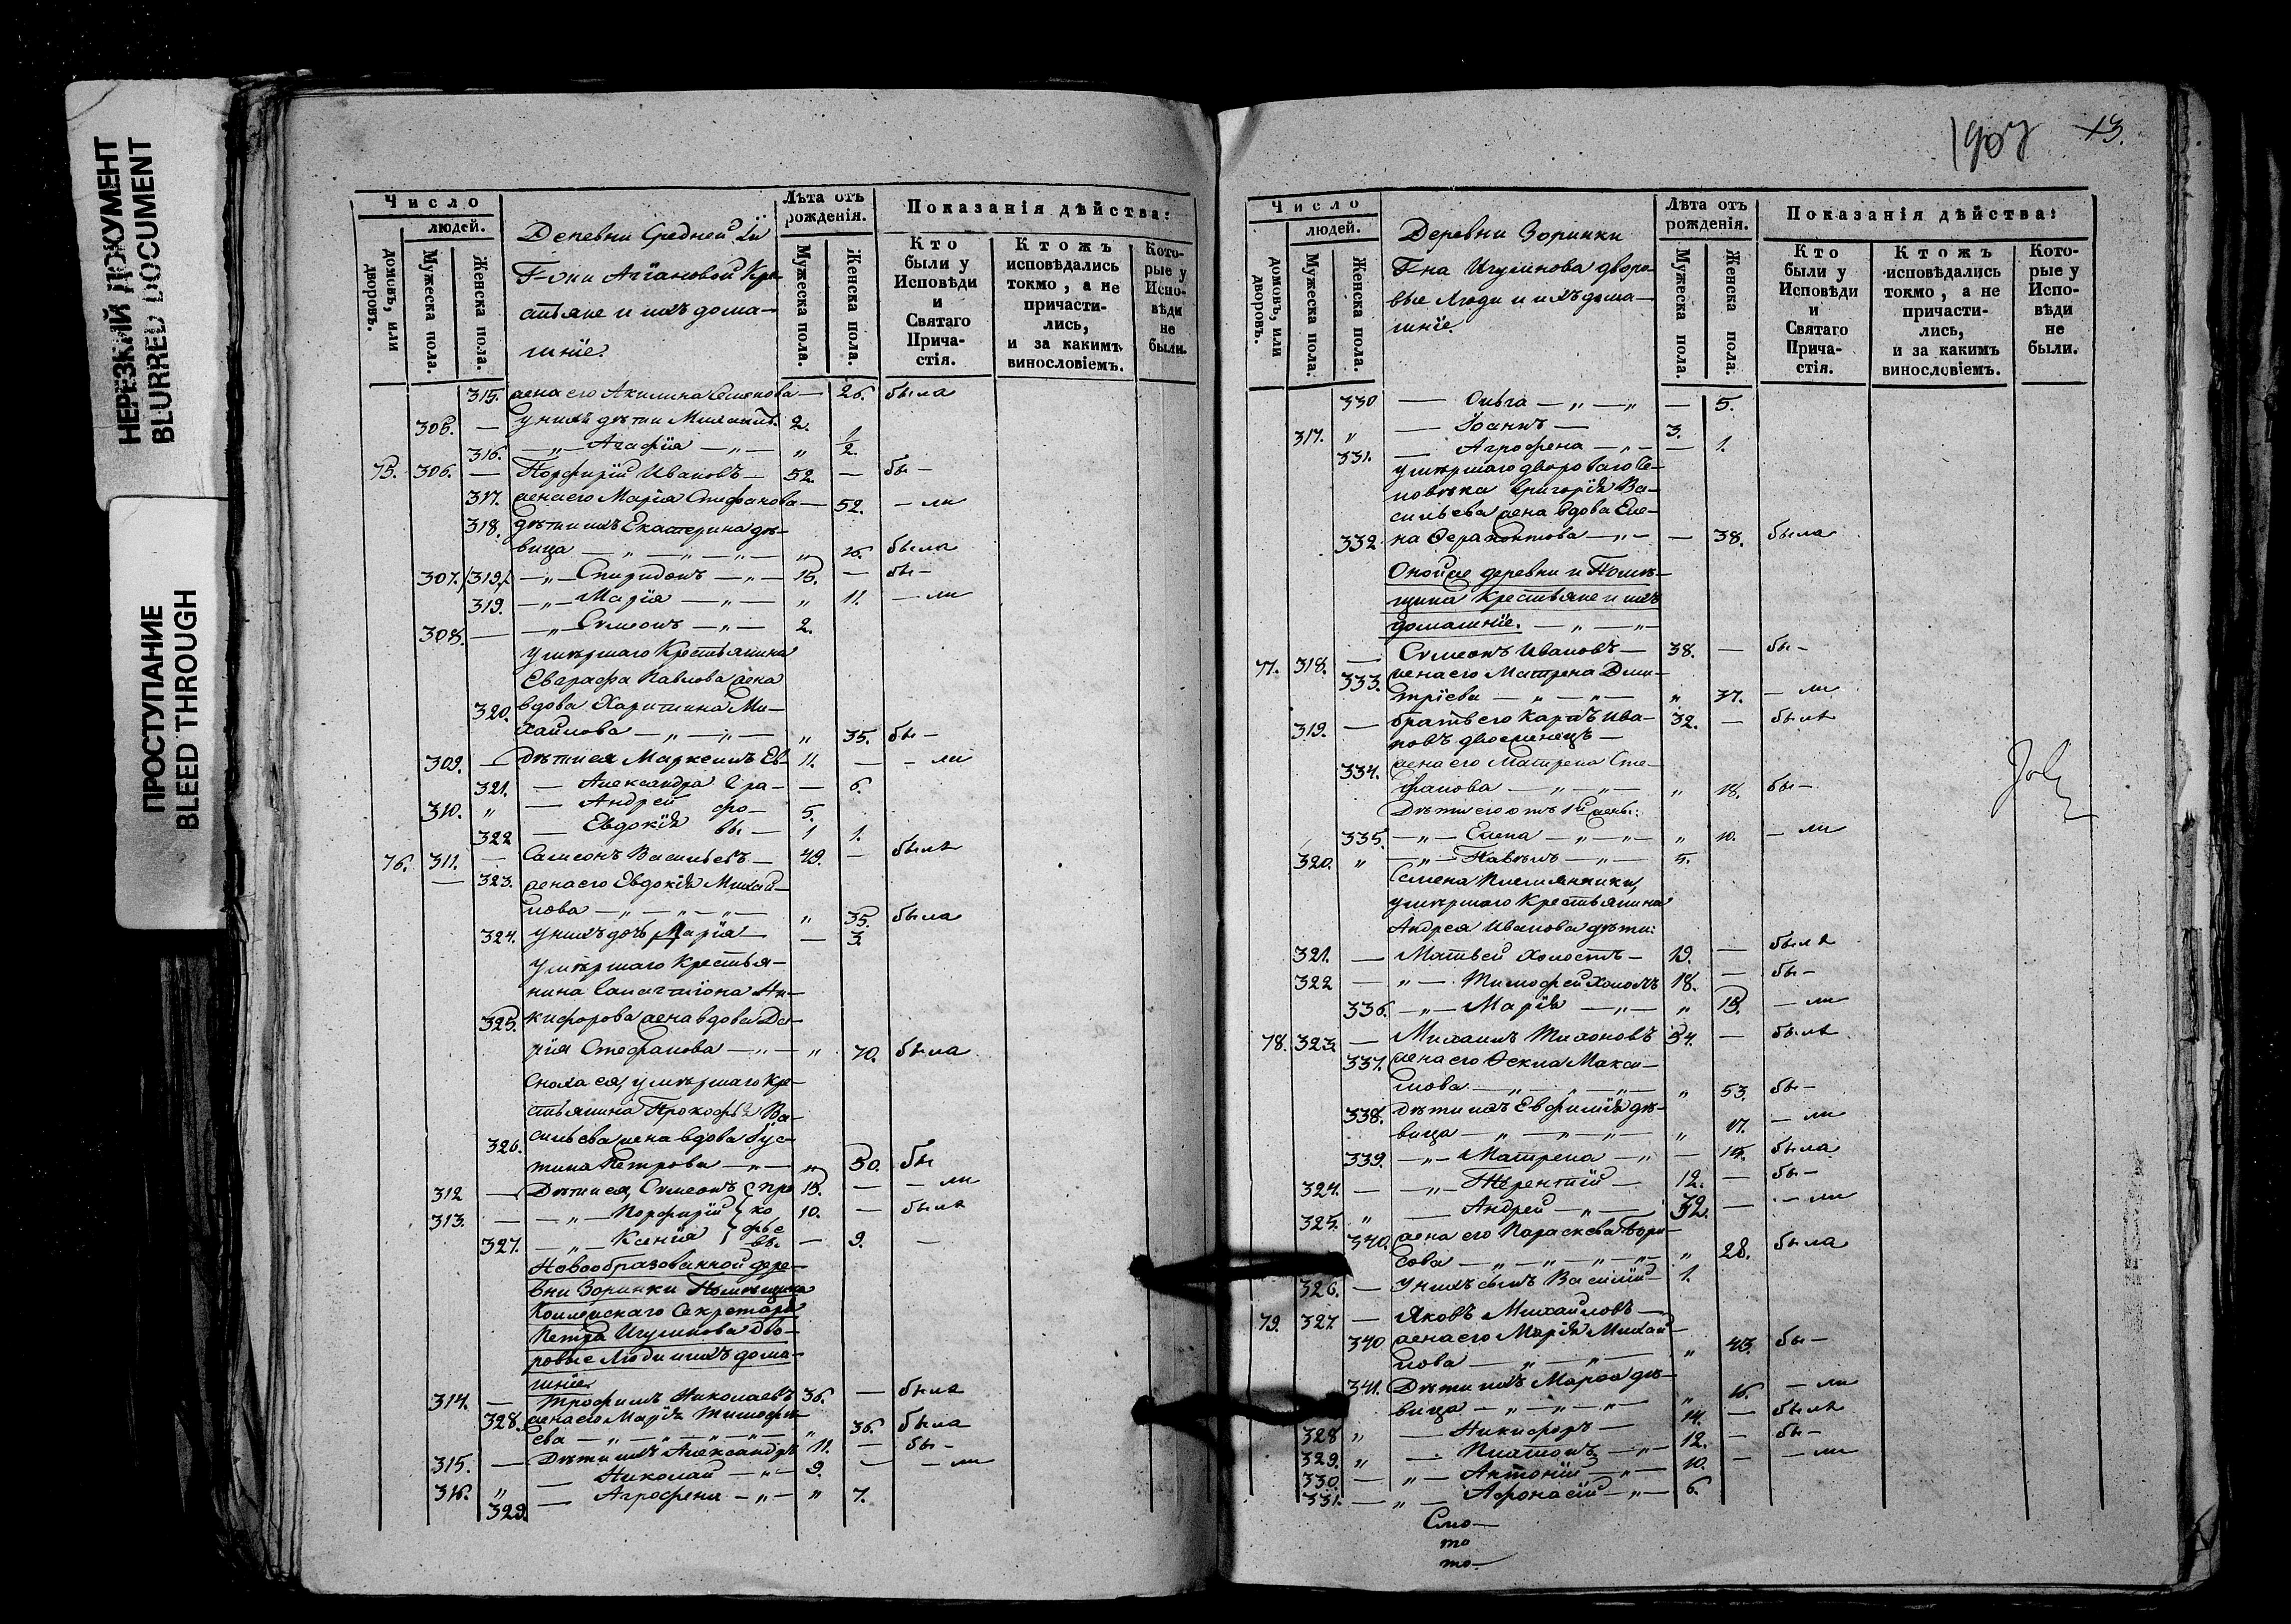 НЕРЕЗКИЙ ДОКУМЕНТ
BLURRED DOCUMENT
ПРОСТУПАНИЕ
BLEED THROUGH
Число
людей.
домовъ, или дворовъ.
Мужеска пола.
Женска пола.
Деревни Средней
Крестьяне и ихъ домашніе.
Лѣта отъ рожденія.
Мужеска пола.
Женска пола.
Показанія дѣйства:
Кто были у Исповѣди и Святаго Причастія.
Ктожъ исповѣдались токмо, а не причастились, и за какимъ винословіемъ.
Которые у Исповѣди не были.
315. жена его Акилина Семенова — 26. была
у нихъ дѣти 2.
316. — Агафія — " 1/2.
75. 306. — Порфирій Ивановъ — 52. — бы —
317. жена его Марія Стефанова — 52. — ли
318. дѣти ихъ Екатерина дѣ-
вица — " — " — " была
307. 319. — " — Спиридонъ — " — 15. — бы —
319. — " — Марія — " — " 11. — ли
308. — — " — Сѵмеонъ — " — 2.
умершаго Крестьянина
Евграфа Павлова жена
320. вдова Харитина Ми-
хайлова — " — " — " 35. бы —
309. — дѣти ея Маркеллъ Ев- 11. — — ли
321. — Александра гра- — 6.
310. " — Андрей фо- 5.
322 — Евдокія вы — 1.
76. 311. — Самсонъ Васильевъ — 49. — былъ
323. жена его Евдокія Михай-
лова — " — " — " — " 35. была
324. у нихъ дочь Марія — — 3.
умершаго Крестья-
нина Ни-
325. кифорова жена вдова Да-
рія Стефанова — " — " 70. была
Сноха ея, умершаго Кре-
стьянина Прокофья Ва-
326. сильева жена вдова Іус-
тина Петрова — " — " 50. бы
312 — Дѣти ея, Сѵмеонъ про 15. — — ли
313. — — " — Порфирій ко 10. — былъ
327. — " — Ксенія фье вы. — 9. —
Новообразованной дере-
вни Зоринки Помѣщика
Коллежскаго Секретаря
Петра Игумнова дво-
ровые Люди и ихъ дома-
шніе.
314. — Трофимъ Николаевъ 36. — былъ
328. жена его Марія Тимофѣ-
ева — " — " — " — " — " 36. была
315. — Дѣти ихъ Александръ 11. — бы —
316. " — Николай — " — 9. — — ли
329. — Агрофена — " — " 7.
1907 13.
Число
людей.
домовъ, или дворовъ.
Мужеска пола.
Женска пола.
Деревни Зоринки
Г-на Игумнова дворо-
вые Люди и ихъ дома-
шніе.
Лѣта отъ рожденія.
Мужеска пола.
Женска пола.
Показанія дѣйства:
Кто были у Исповѣди и Святаго Причастія.
Ктожъ исповѣдались токмо, а не причастились, и за какимъ винословіемъ.
Которые у Исповѣди не были.
330 — Ольга — " — " — 5.
317. " — Іоаннъ — 3.
331. — Агрофена — " — — 1.
умершаго двороваго че-
ловѣка Григорія Ва-
сильева жена вдова Еле-
332. на Ферапонтова — " — — 38. была
Оной же деревни и Помѣ-
щика Крестьяне и ихъ
домашніе. — " — "
77. 318. — Сѵмеонъ Ивановъ — 38. — бы —
333. жена его Матрена Дми-
тріева — " — " — " 37. — ли
319. — братъ его Карпъ Ива- 32. — былъ
новъ двоеженецъ —
334. жена его Матрена Сте-
фанова — " — " — " 18. бы —
Дѣти его отъ 1й жены:
335. — " — Елена — " — " — " 10. — ли
320. " — " — Павелъ — " — 5.
Семена племянники,
умершаго Крестьянина
Андрея Иванова дѣти:
321. — Матвей холостъ — 19. — былъ
322 — " — Тимофей холостъ 18. — бы —
336. — " — Марія — " — " 15. — ли
78. 323. — Михаилъ Тихоновъ 54. — былъ
337. жена его Фекла Макси-
мова — " — " — " — " 53. бы —
338. дѣти ихъ Евфимія дѣ-
вица — " — " — " — " 17. — ли
339. — " — Матрена — " — 15. была
324. — " — Терентій — 12. — бы —
325. " — Андрей — " — 32. — — ли
340. жена его Параскева Бори-
сова — " — " — " — " 28. была
326. — у нихъ сынъ Василій — 1.
79. 327 — Яковъ Михайловъ —
340 жена его Марія Михай-
лова — " — " — " 43. бы —
341. Дѣти ихъ Марѳа дѣ-
вица — " — " — " — " 16. — ли
328 " — Никифоръ — 14. — былъ
329. " — Платонъ — " — 12. — бы —
330. — " — Антоній — " — 10. — — ли
331. — " — Афонасій — " — 6.
Сто-
то
то-